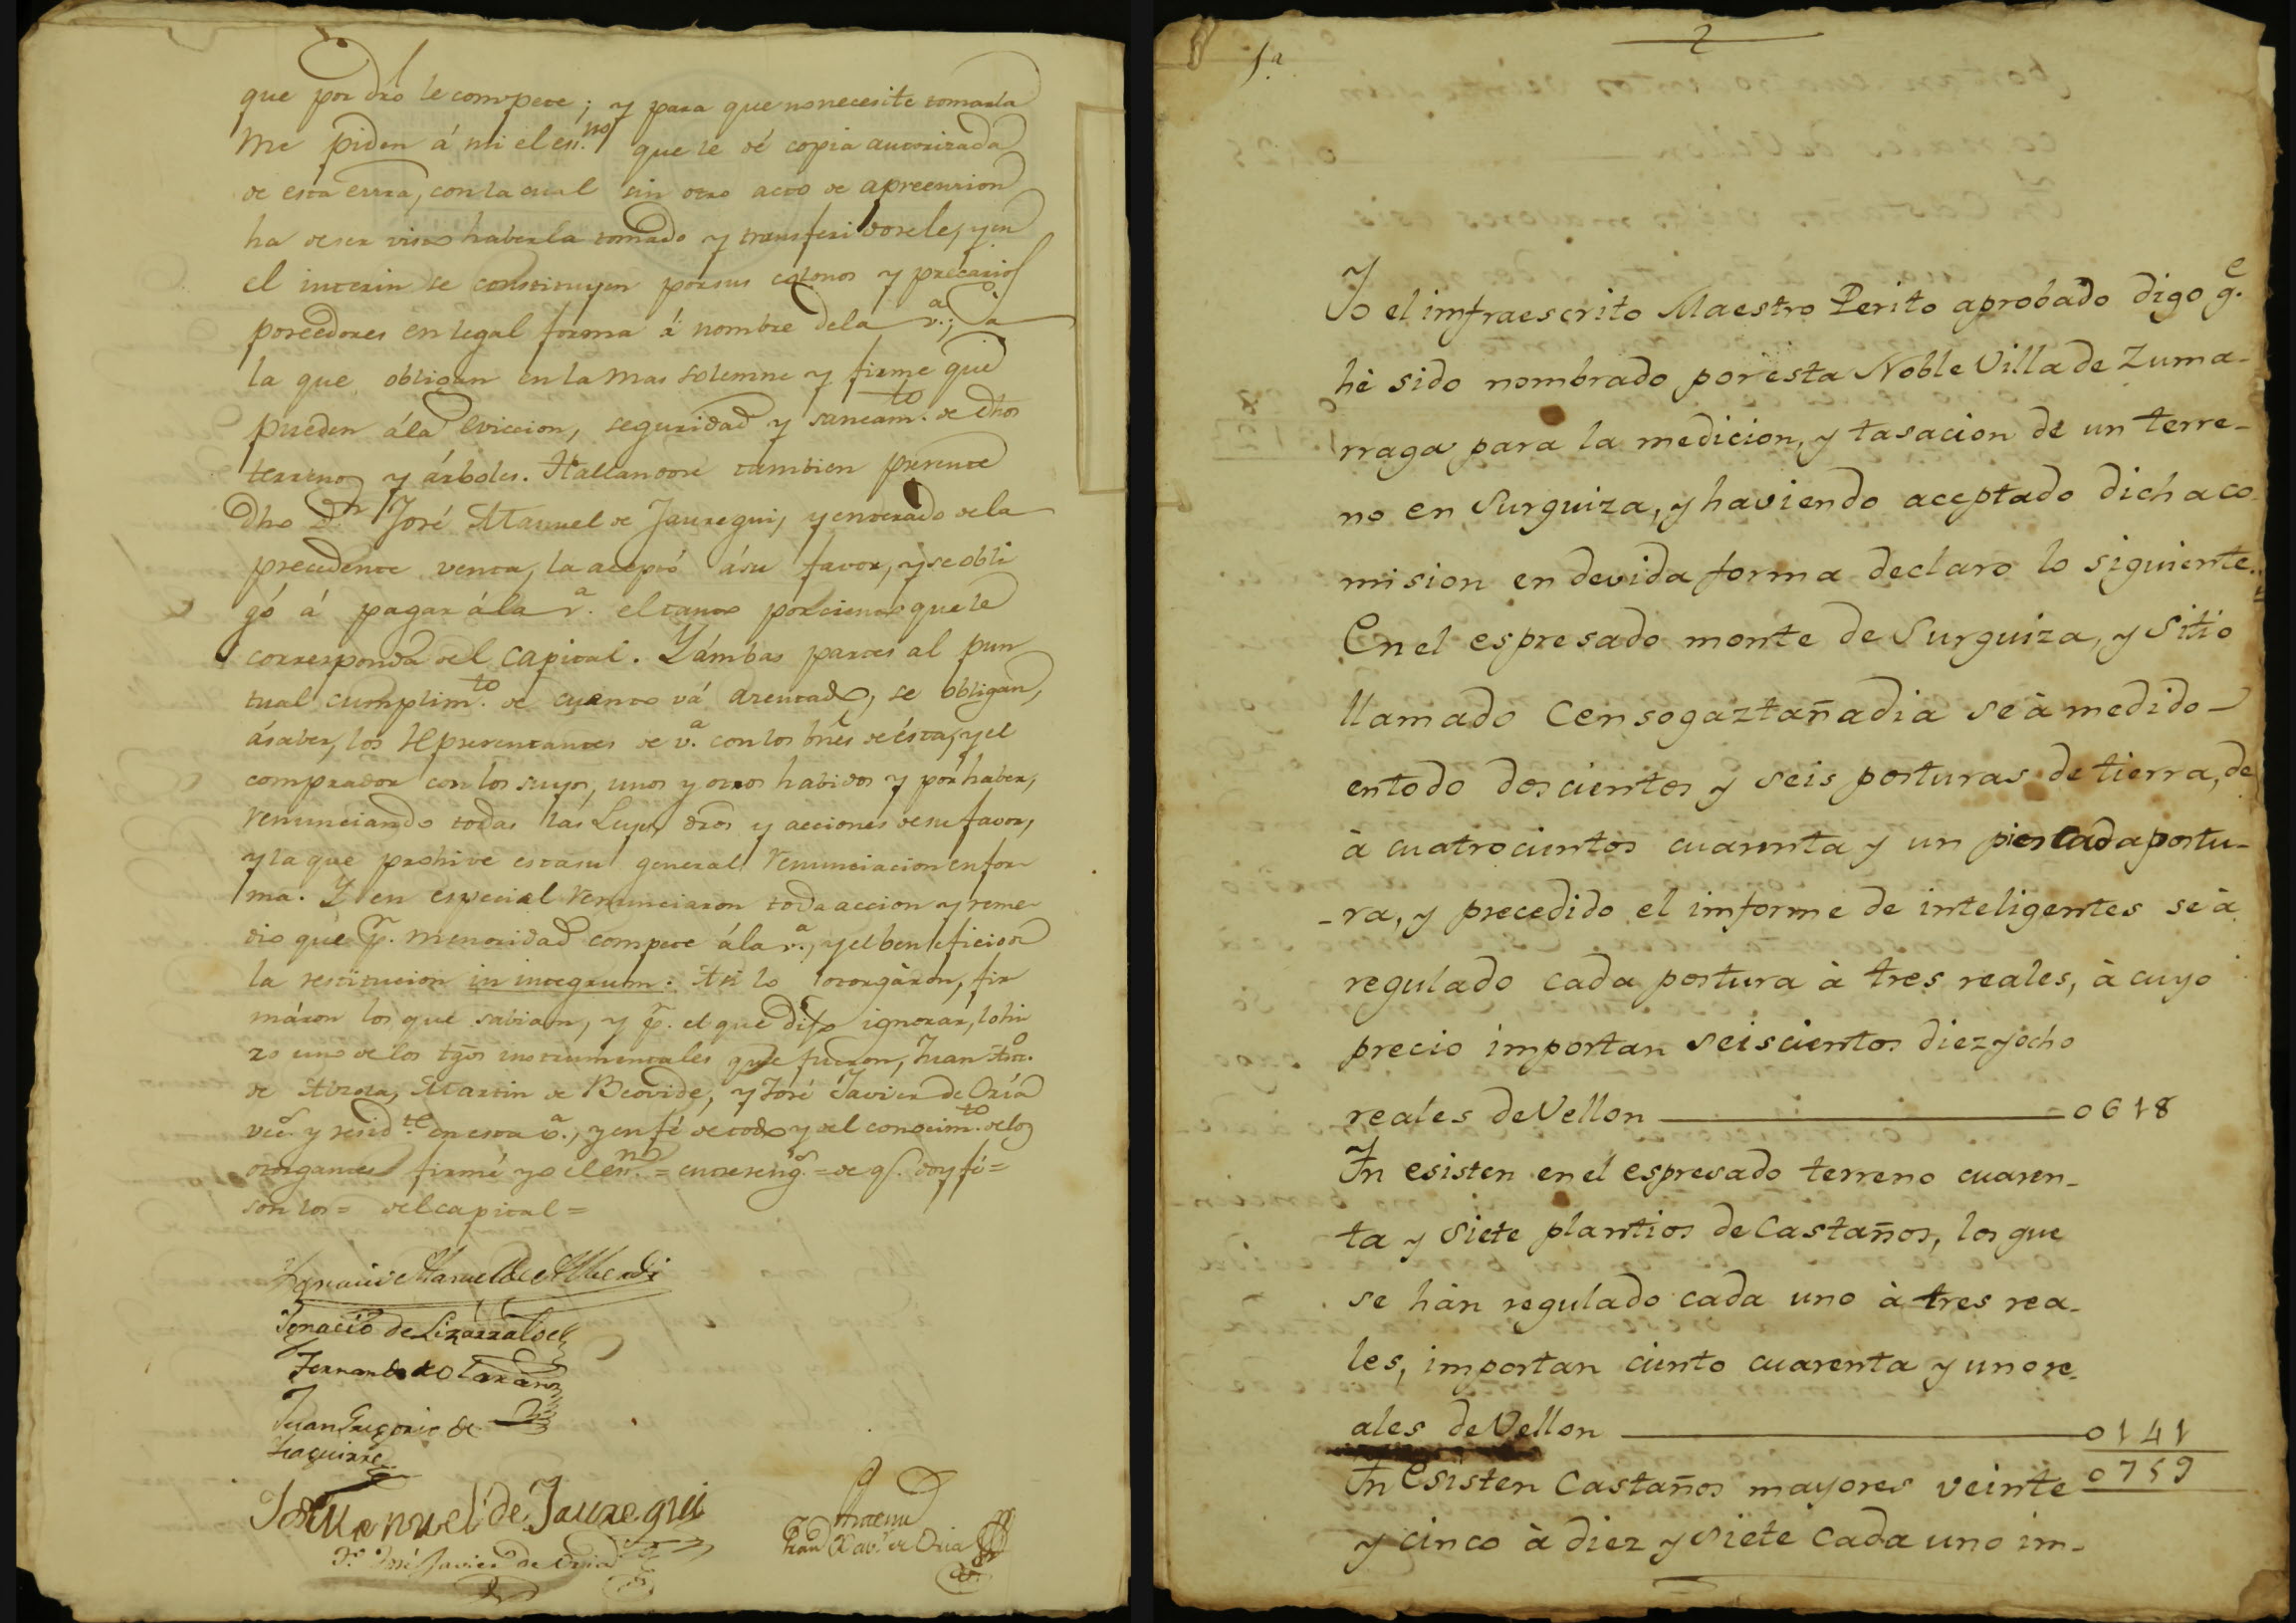 que por dro le compete; y para que no necesite tomarla
me piden á mi el esn.no que le dé copia autorizada
de esta esrra, con la cual sin otro acto de apreension
ha de ser visto haberla tomado y transferidosele, y en
el interin se constituyen por sus colonos y precarios
poseedores en legal forma á nombre de la v.a; á
la que obligan en la mas solemne y firme que
pueden á la eviccion, seguridad y saneam.to de dhos
terreno y árboles. Hallandose tambien presente
dho D.n José Manuel de Jauregui, y enterado de la
precedente venta, la aceptó á su favor, y se obli
gó á pagar á la v.a el tanto por ciento que le
corresponda del capital. Y ámbas partes al pun
tual cumplim.to de cuanto vá asentado, se obligan,
á saber, los representantes de v.a con los bnes de ésta, y el
comprador con los suyos, unos y otros habidos y por haber,
renunciando todas las Leyes, dros y acciones de su favor,
y la que prohive esta su general renunciacion en for
ma. Y en especial renunciaron toda accion y reme
dio que p.r menoridad compete á la v.a, y el beneficio de
la restitucion in integrum: Asi lo otorgáron, fir
máron los que sabian, y p.r el que dijo ignorar, lo hi
zo uno de los tgos instrumentales que fueron, Juan Ant.o
de Arzola, Martin de Beovide, y José Javier de Oria
vec.s y resid.tes en esta v.a, y en fé de todo y del conocim.to de los
otorgantes firmé yo el esn.no = entrereng.s = de q.e doy fé =
son los = del capital =
Ignacio Manuel de Alberdi
Ignacio de Lizarralde
Fernando de Olaran
Juan Gregorio de
Yzaguirre
José Manuel de Jauregui
T.o José Javier de Oria
Ante mi
Fran.co Xav.r de Oria
1.a
2
Yo el imfraescrito Maestro Perito aprobado digo q.e
hè sido nombrado por esta Noble Villa de Zuma-
rraga para la medicion, y tasacion de un terre-
no en Surguiza, y haviendo aceptado dicha co-
mision en devida forma declaro lo siguiente.
En el espresado monte de Surguiza, y Sitio
llamado Censogaztañadia se à medido
en todo doscientos y seis posturas de tierra, de
à cuatrocientos cuarenta y un pies cada postu-
-ra, y precedido el imforme de inteligentes se à
regulado cada postura à tres reales, à cuyo
precio importan seiscientos diez y ocho
reales de Vellon 0618
Yn esisten en el espresado terreno cuaren-
ta y Siete plantios de Castaños, los que
se hàn regulado cada uno à tres rea-
les, importan ciento cuarenta y un re-
ales de Vellon 0141
0759
Yn Esisten Castaños mayores veinte
y cinco à diez y Siete Cada uno im-